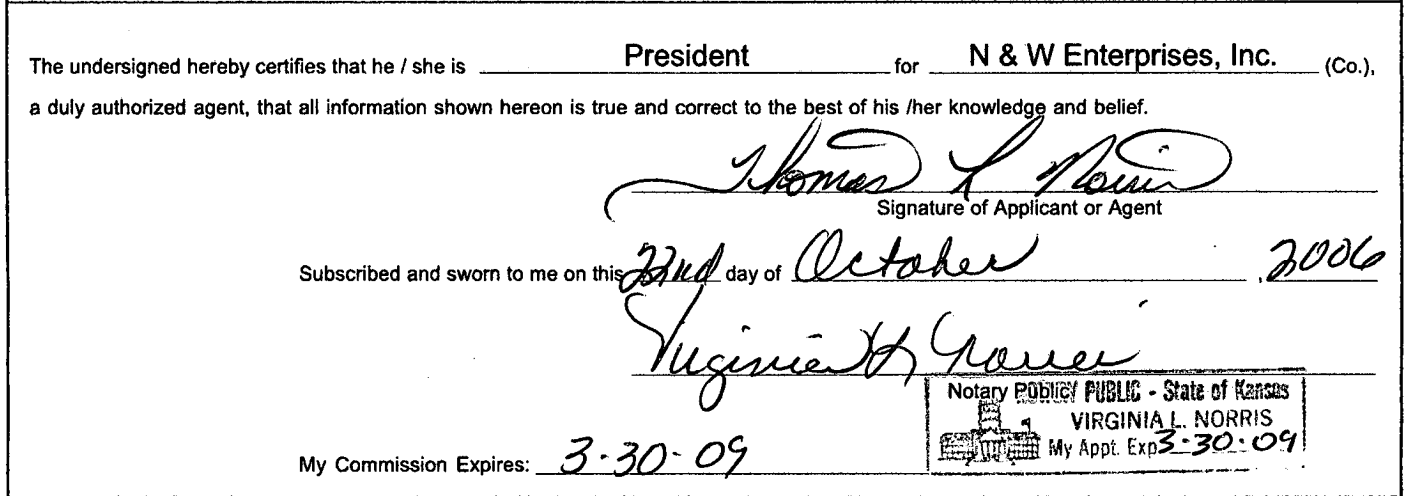 The undersigned hereby certifies that he / she is President for N & W Enterprises, Inc. (Co.),
a duly authorized agent, that all information shown hereon is true and correct to the best of his /her knowledge and belief.
Thomas L Norris
Signature of Applicant or Agent
Subscribed and sworn to me on this 22nd day of October , 2006
Virginia L Norris
Notary Public
NOTARY PUBLIC - State of Kansas
VIRGINIA L. NORRIS
My Appt. Exp 3-30-09
My Commission Expires: 3-30-09